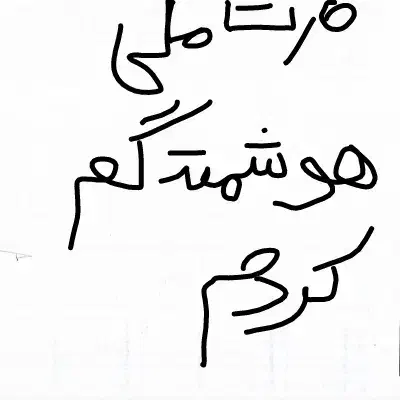 کارت ملی
هوشمند گم
کردم